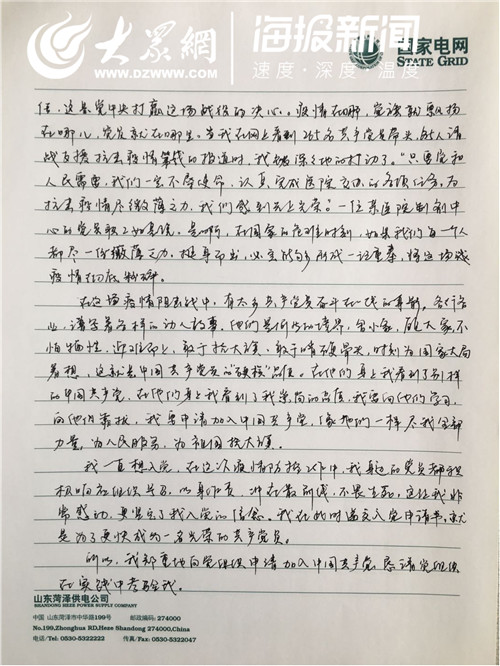 大众網
WWW.DZWWW.COM
海报新闻
速度·深度·温度
国家电网
STATE GRID
任,这是党中央打赢这场战役的决心。疫情在哪,党旗就飘扬
在哪儿,党员就在哪里。当我在网上看到265名共产党员带头,
战支援抗击疫情第一线的报道时,我被深深地打动了。“只要党和
人民需要,我们一定不辱使命,认真完成医院交办的各项任务,为
抗击疫情尽绵薄之力,我们感到无上光荣。”一位某医院制剂中
心的党员
是啊,在国家的危难时刻,如果我们每一个人
都尽一份绵薄之力,挺身而出,必定能够
疫情彻底粉碎。
在这场疫情阻击战中,有太多共产党员奋斗在一线的事例,各行各
业,谱写着各样的动人故事,他们是何等的境界,舍小家,顾大家,不
怕牺牲,迎难而上,敢于抗大旗、敢于啃硬骨头,时刻为国家大局
着想,这就是中国共产党员的“硬核”品质。在他们身上我看到了别样
的中国共产党,在他们身上我看到了我崇高的
我要向他们学习,
向他们靠拢,我要申请加入中国共产党,像他们一样尽我全部
力量,为人民服务,为祖国抗大旗。
我一直想入党,在这次疫情防控工作中,我身边的党员都积
极响应组织号召,以身作责,冲在最前线,不畏生死,这让我非
常感动,更坚定了我入党的信念。我在此时递交入党申请书,就
是为了更快成为一名光荣的共产党员。
所以,我郑重地向党组织申请加入中国共产党,恳请党组织
在实践中考验我。
山东菏泽供电公司
SHANDONG HEZE POWER SUPPLY COMPANY
中国 山东菏泽市中华路199号 邮政编码:274000
No.199,Zhonghua RD,Heze Shandong 274000,China
电话/Tel: 0530-5322222 传真/Fax: 0530-5322047